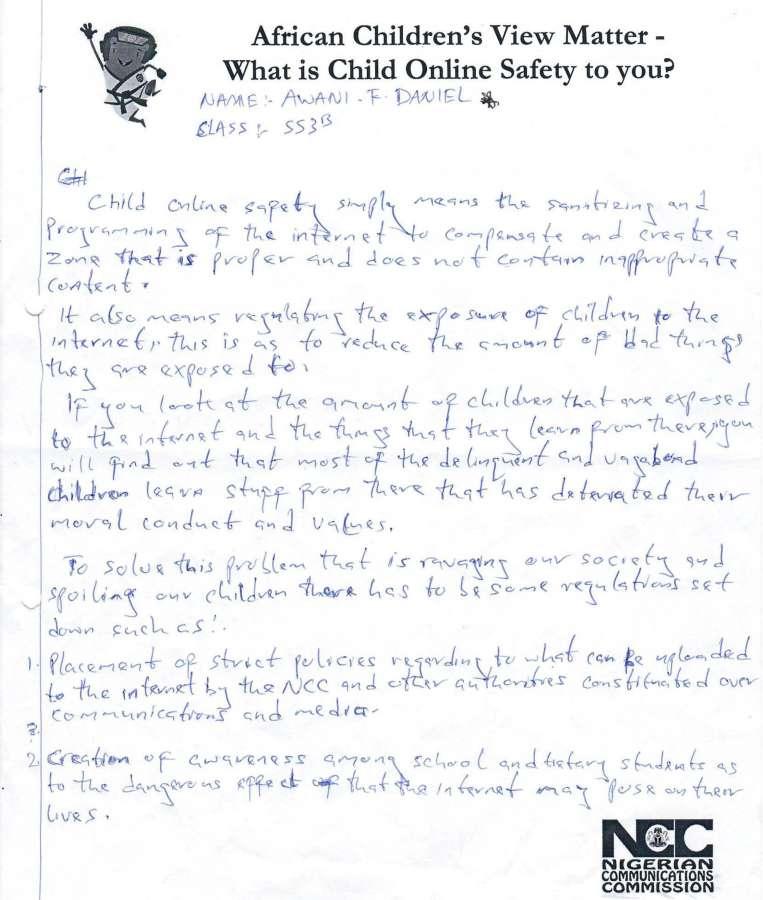 African Children's View Matter -
What is Child Online Safety to you?
NAME:- AWANI - F. DANIEL
CLASS:- SS3B
Child online safety simply means the sanitizing and
Programming of the internet to compensate and create a
Zone that is proper and does not contain inappropriate
content.
It also means regulating the exposure of children to the
internet, this is as to reduce the amount of bad things
they are exposed to.
If you look at the amount of children that are exposed
to the internet and the things that they learn from there, you
will find out that most of the delinquent and vagabond
children learn stuff from there that has deterrated their
moral conduct and values.
To solve this problem that is ravaging our society and
spoiling our children there has to be some regulations set
down such as:-
1. Placement of strict policies regarding to what can be uploaded
to the internet by the NCC and other authorities constituated over
communications and media.
2. Creation of awareness among school and tietary students as
to the dangerous effect of that the internet may pose on their
lives.
NCC
NIGERIAN
COMMUNICATIONS
COMMISSION